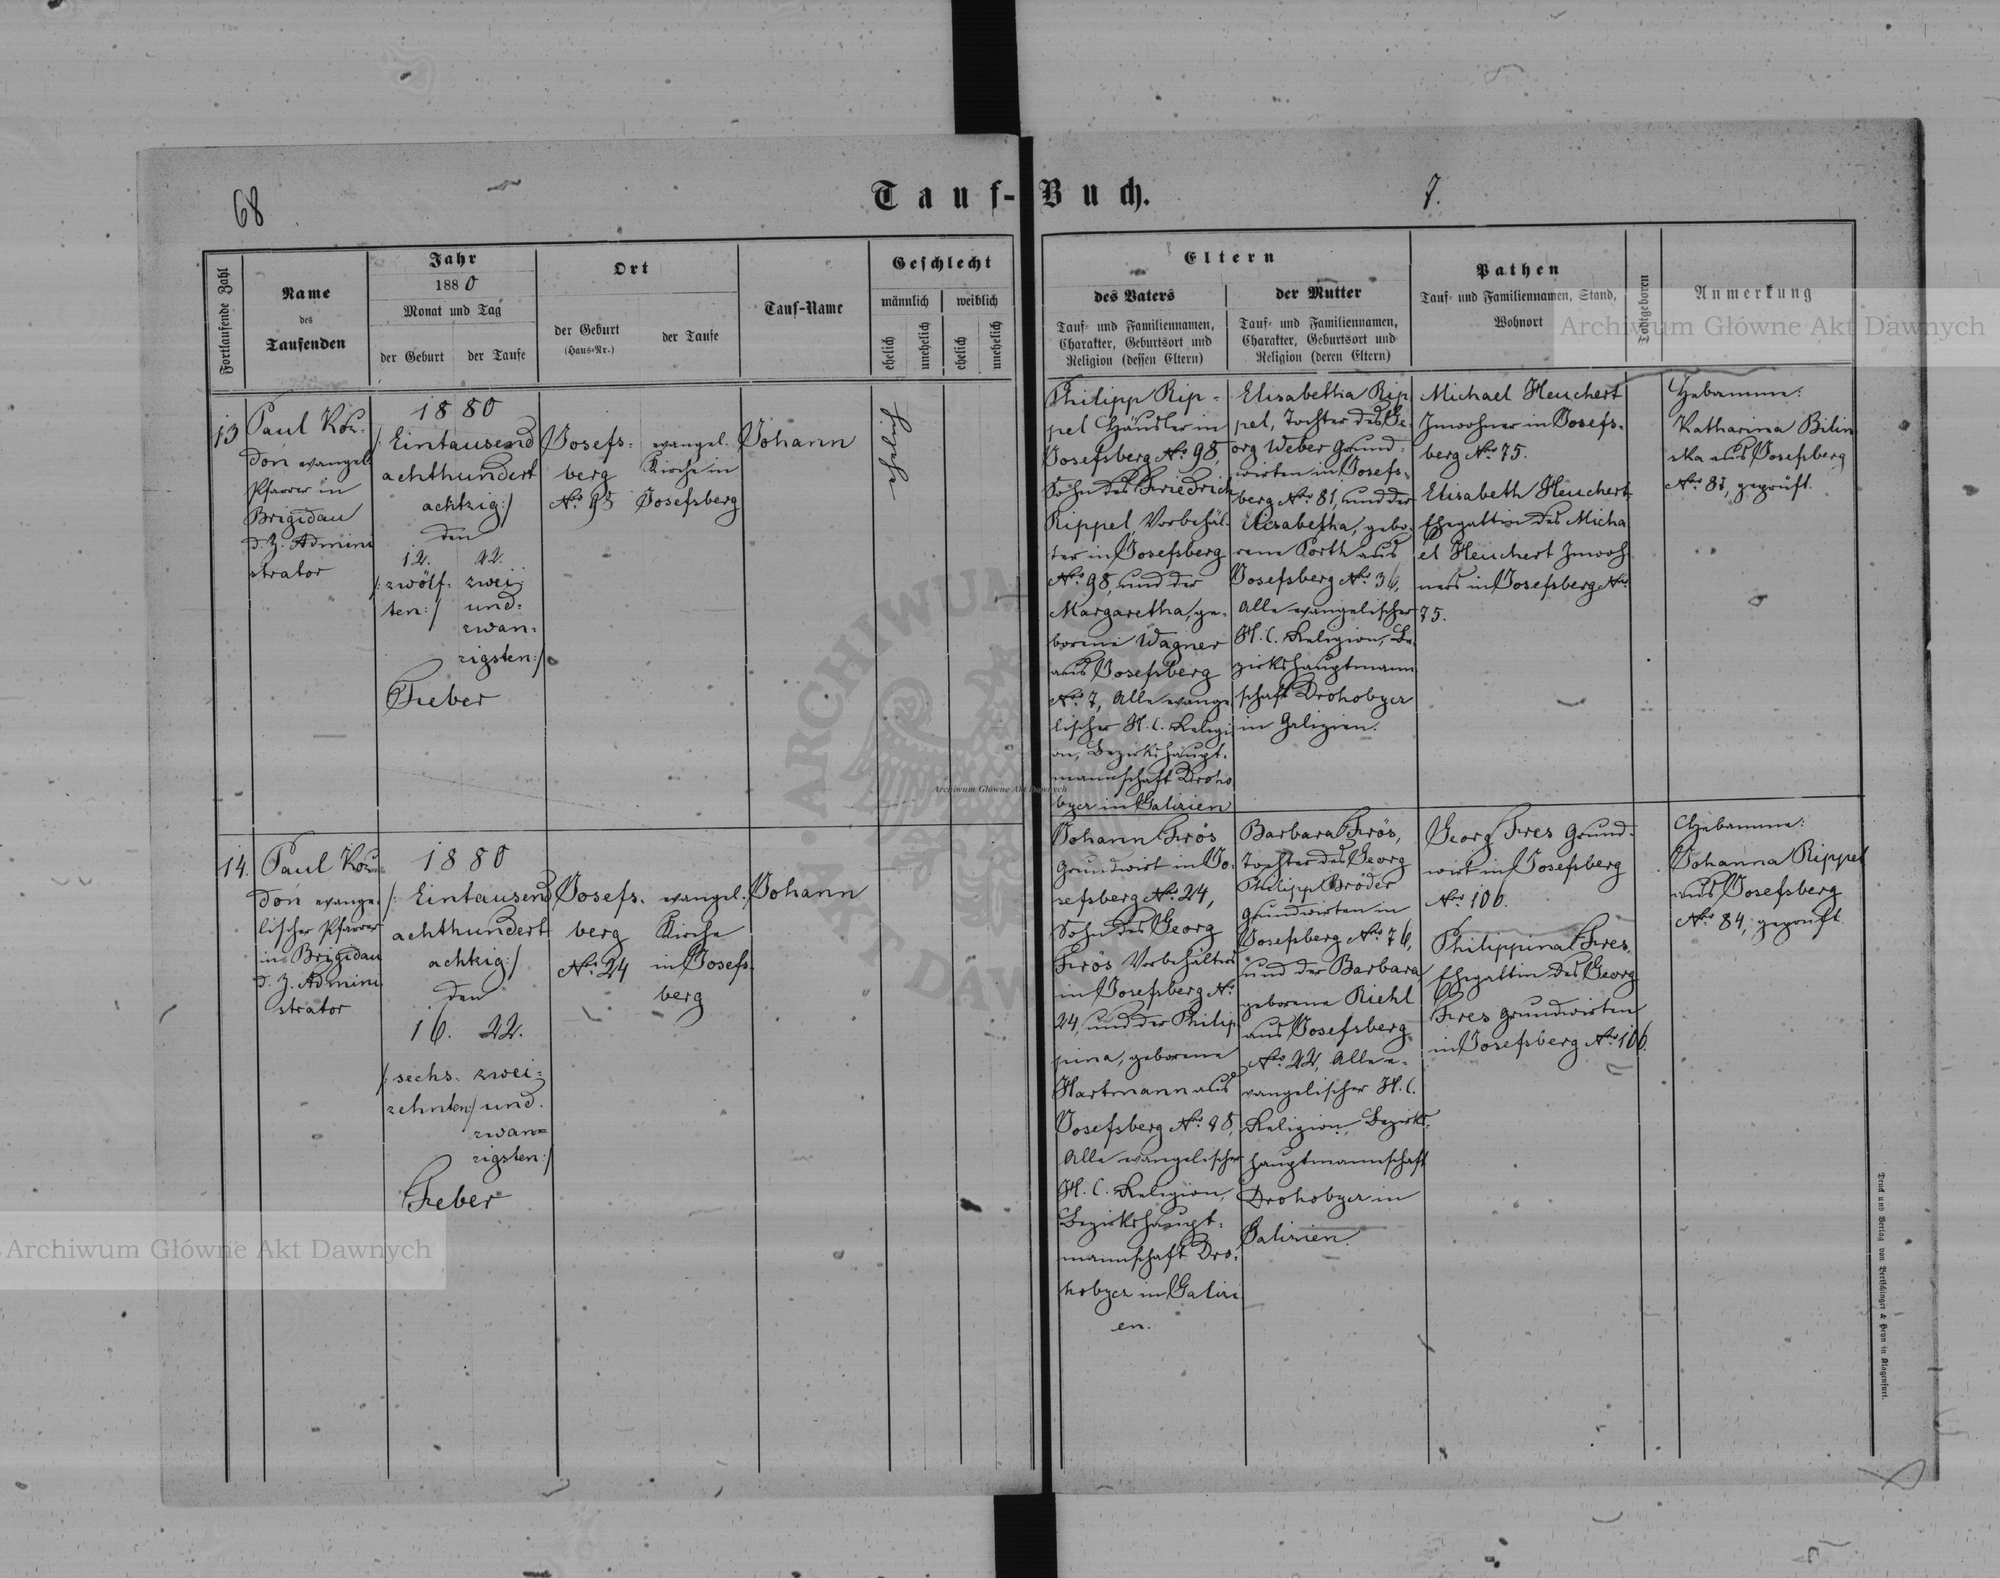 68
Tauf-Buch.
7.
Fortlaufende Zahl
Name
des
Taufenden
Jahr
1880
Monat und Tag
der Geburt
der Taufe
Ort
der Geburt
(Haus-Nr.)
der Taufe
Tauf-Name
Geschlecht
männlich
weiblich
ehelich
unehelich
ehelich
unehelich
Eltern
des Vaters
Tauf- und Familiennamen,
Charakter, Geburtsort und
Religion (dessen Eltern)
der Mutter
Tauf- und Familiennamen,
Charakter, Geburtsort und
Religion (deren Eltern)
Pathen
Tauf- und Familiennamen, Stand,
Wohnort
Todtgeboren
Anmerkung
Archiwum Główne Akt Dawnych
13
Paul Kou-
don evangel.
Pfarrer in
Brigidau
d. Z. Admini
strator
1880
/: Eintausend
achthundert
achtzig :/
den
12. 22.
/: zwölf- zwei
ten :/ und-
zwan-
zigsten :/
Feber
Josefs-
berg
No. 98
evangel.
Kirche in
Josefsberg
Johann
ehelich
Philipp Rip-
pel Häusler in
Josefsberg No. 98,
Sohn des Friedrich
Rippel Vorbehäl-
ter in Josefsberg
No. 98, und der
Margaretha, ge-
borene Wagner
aus Josefsberg
No. 7, Alle evange
lischer H. C. Religi
on, Bezirkshaupt-
mannschaft Droho
bycz in Galizien
Elisabetha Rip
pel, Tochter des Ge-
org Weber Grund-
wirten in Josefs-
berg No. 81, und der
Elisabetha, gebo-
rene Porth aus
Josefsberg No. 36,
Alle evangelischer
H. C. Religion, Be-
zirkshauptmann
schaft Drohobycz
in Galizien.
Michael Heuchert
Inwohner in Josefs-
berg No. 75.
Elisabeth Heuchert
Ehegattin des Micha
el Heuchert Inwoh
ners in Josefsberg No.
75.
Hebamme:
Katharina Bilin
ska aus Josefsberg
No. 81, geprüft.
14.
Paul Kou-
don evange-
lischer Pfarrer
in Brigidau
d. Z. Admini
strator
1880
/: Eintausend
achthundert
achtzig :/
den
16. 22.
/: sechs- zwei-
zehnten :/ und-
zwan-
zigsten :/
Feber
Josefs-
berg
No. 24
evangel.
Kirche
in Josefs-
berg
Johann
Johann Frös
Grundwirt in Jo-
sefsberg No. 24,
Sohn des Georg
Frös Vorbehälters
in Josefsberg No.
24, und der Philip
pina, geborene
Hartmann aus
Josefsberg No. 48,
Alle evangelischer
H. C. Religion,
Bezirkshaupt-
mannschaft Dro-
hobycz in Galizi
en.
Barbara Frös,
Tochter des Georg
Philipp Bröder
Grundwirten in
Josefsberg No. 76,
und der Barbara
geborene Riehl
aus Josefsberg
No. 22, Alle e-
vangelischer H. C.
Religion, Bezirks-
hauptmannschaft
Drohobycz in
Galizien.
Georg Fres Grund-
wirt in Josefsberg
No. 106.
Philippina Fres,
Ehegattin des Georg
Fres Grundwirten
in Josefsberg No. 106.
Hebamme:
Johanna Rippel
aus Josefsberg
No. 84, geprüft.
Archiwum Główne Akt Dawnych
ARCHIWUM
AKT DAW
Archiwum Główne Akt Dawnych
Druck und Verlag von Bertschinger & Heyn in Klagenfurt.